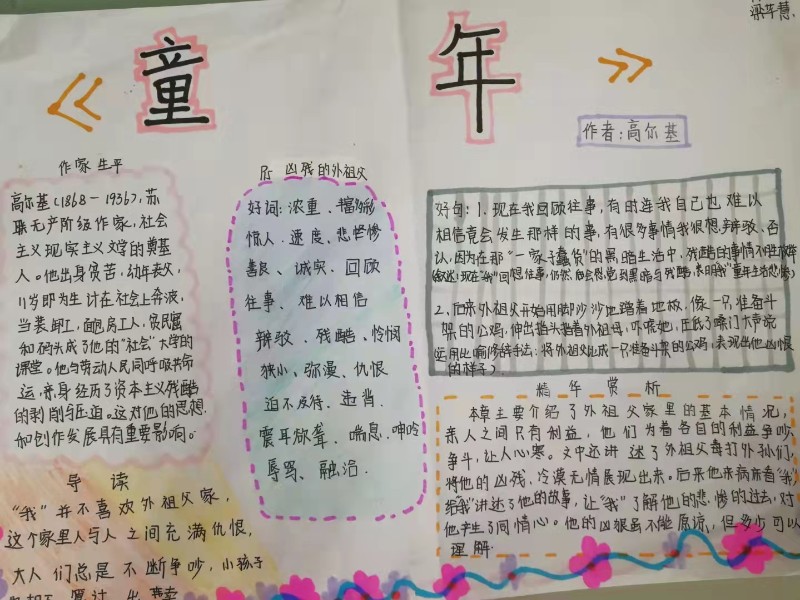 梁华慧
《童年》
作者:高尔基
作家生平
高尔基(1868-1936),苏
联无产阶级作家,社会
主义现实主义文学的奠基
人。他出身贫苦,幼年丧父,
11岁即为生计在社会上奔波,
当装卸工,面包房工人,贫民窟
和码头成了他的“社会”大学的
课堂。他与劳动人民同呼吸共命
运,亲身经历了资本主义残酷
的剥削与压迫。这对他的思想
和创作发展具有重要影响。
导读
“我”并不喜欢外祖父家,
这个家里人与人之间充满仇恨,
大人们总是不断争吵,小孩子
凶残的外祖父
好词:浓重、
惊人、速度、悲惨
善良、诚实、回顾
往事、难以相信
辩驳、残酷、怜悯
狭小、弥漫、仇恨
迫不及待、违背
震耳欲聋、喘息、呻吟
辱骂、融洽.
好句:1.现在我回顾往事,有时连我自己也难以
相信竟会发生那样的事,有很多事情我很想辩驳、否
认,因为在那“一家子蠢货”的黑暗生活中,残酷的事情
2、后来外祖父开始用脚沙沙地踏着地板,像一只准备斗
架的公鸡,伸出指头指着外祖母,吓唬他,压低了嗓门大声说
运用比喻修辞手法:将外祖父比成一只准备斗架的公鸡,表现出他凶恨
的样子。
精华赏析
本章主要介绍了外祖父家里的基本情况,
亲人之间只有利益,他们为着各自的利益争吵
争斗,让人心寒。文中还讲述了外祖父毒打外孙们,
将他的凶残,冷漠无情展现出来。后来他来病床看“我”
给“我”讲述了他的故事,让“我”了解他的悲惨的过去,对
他产生了同情心。他的凶狠虽不能原谅,但多少可以
理解.